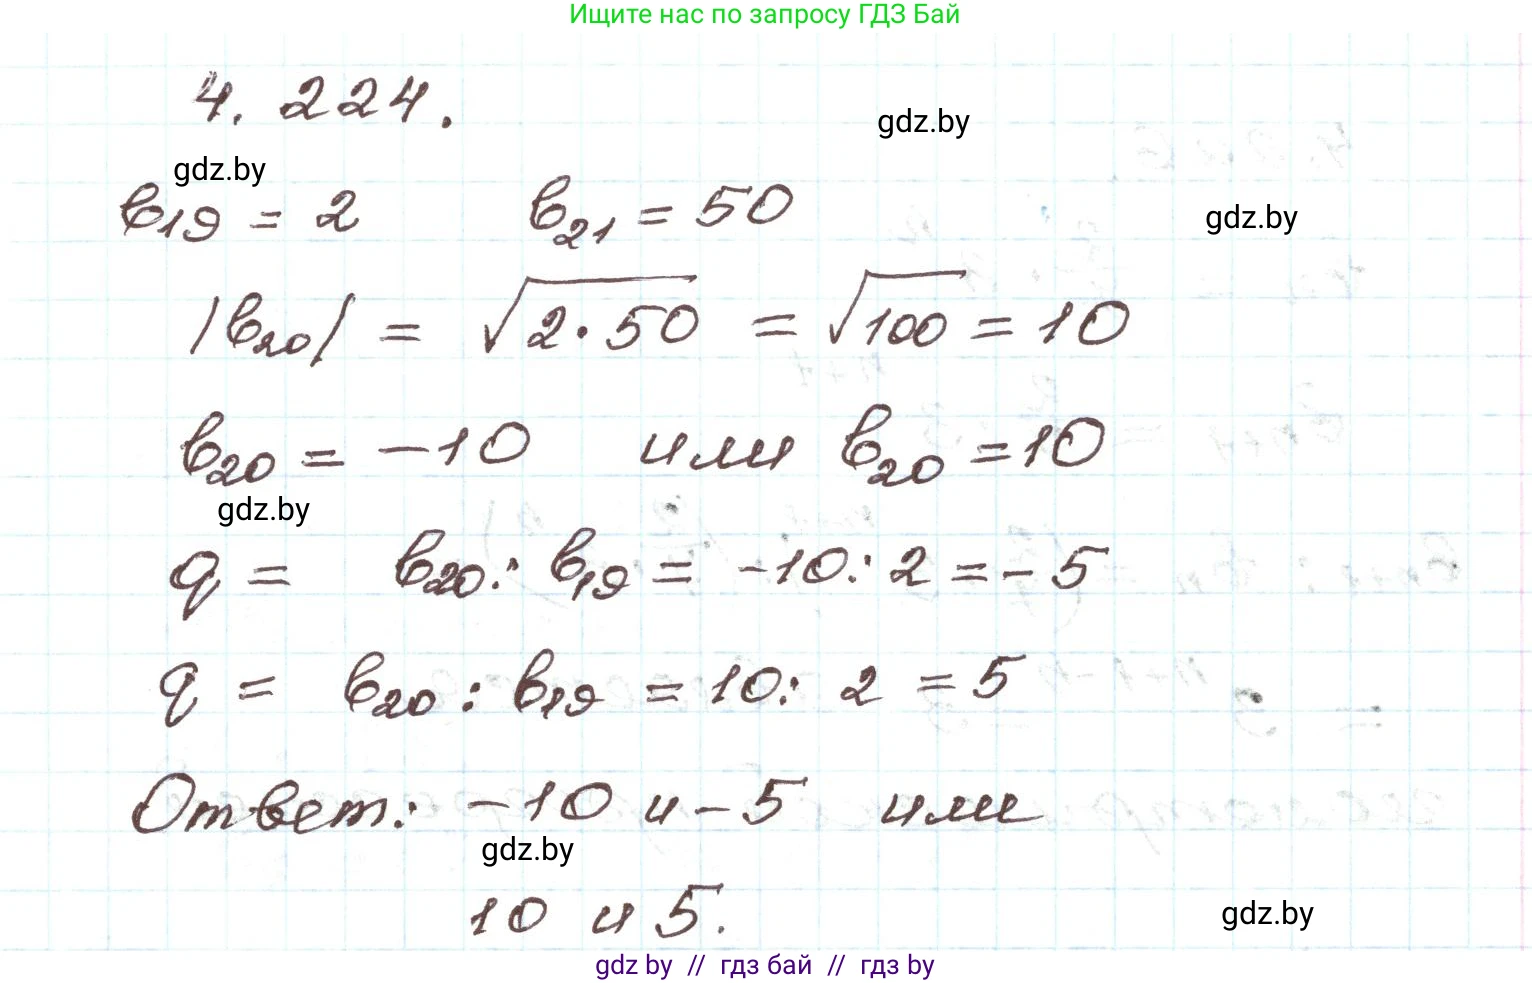 Ищите нас по запросу ГДЗ Бай
4.224.
gdz.by
gdz.by
b₁₉ = 2 b₂₁ = 50
gdz.by
|b₂₀| = √(2·50) = √100 = 10
b₂₀ = -10 или b₂₀ = 10
gdz.by
q = b₂₀ : b₁₉ = -10 : 2 = -5
q = b₂₀ : b₁₉ = 10 : 2 = 5
Ответ: -10 и -5 или
gdz.by
10 и 5.
gdz.by
gdz by // гдз бай // гдз by